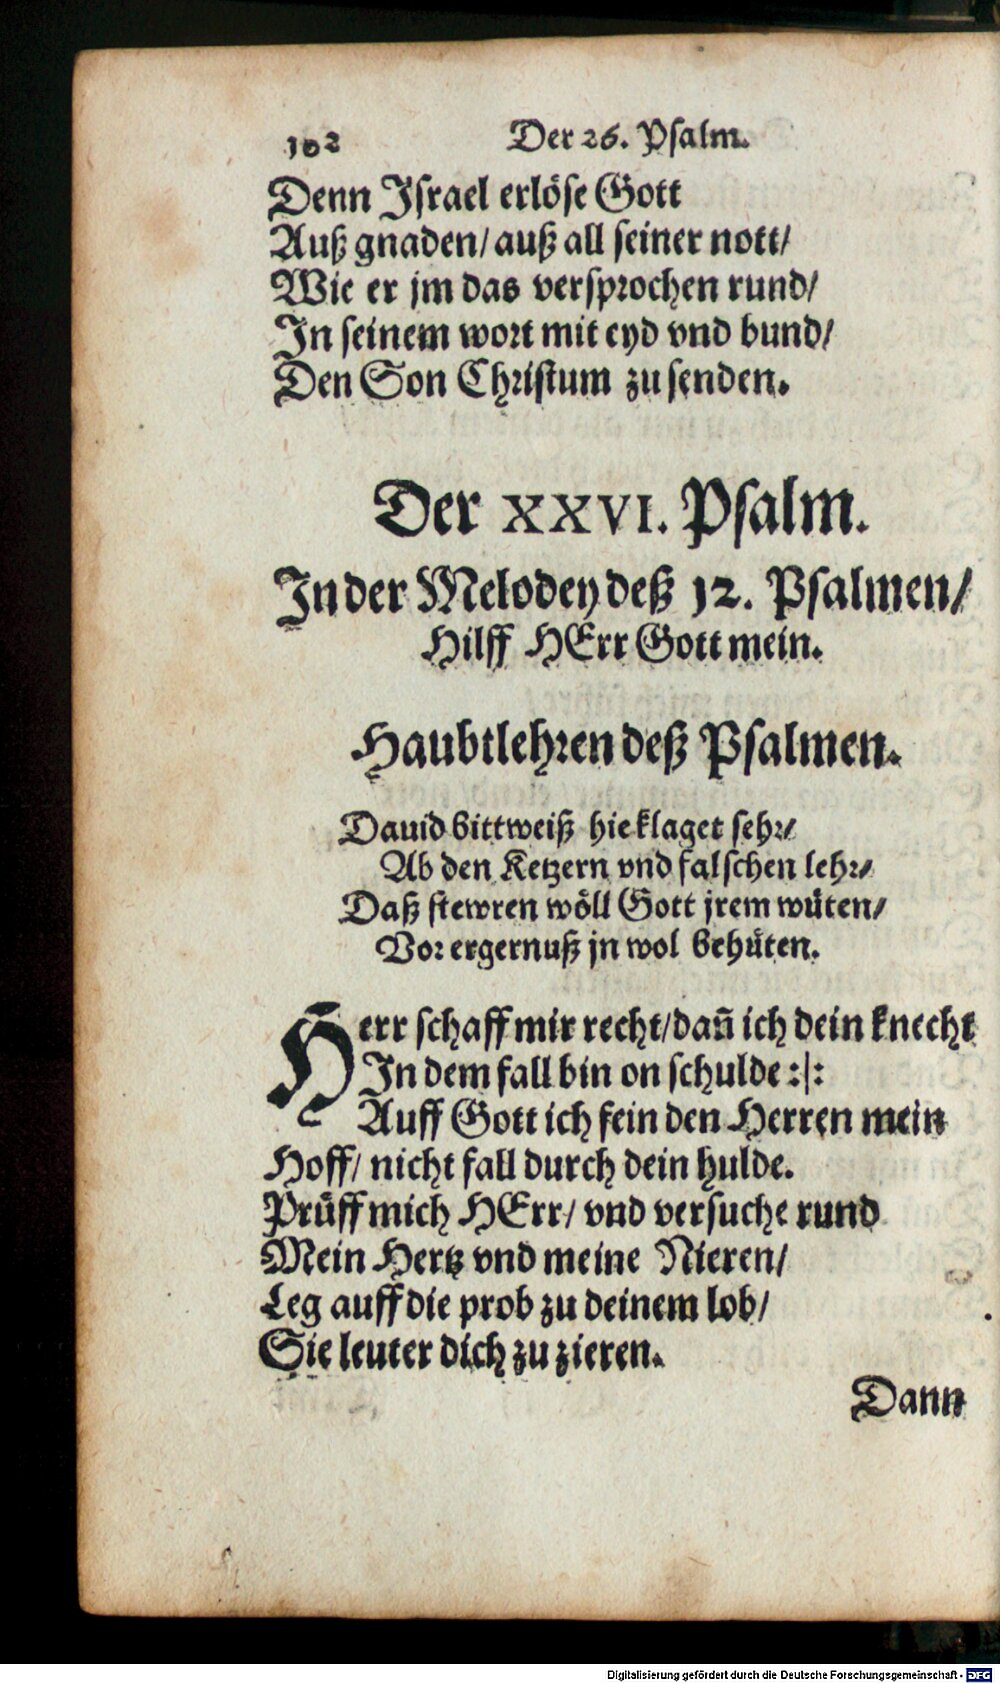 102 Der 26. Psalm.
Denn Israel erlöse Gott
Auß gnaden/ auß all seiner nott/
Wie er jm das versprochen rund/
In seinem wort mit eyd vnd bund/
Den Son Christum zu senden.
Der XXVI. Psalm.
In der Melodey deß 12. Psalmen/
Hilff HErr Gott mein.
Haubtlehren deß Psalmen.
Dauid bittweiß hie klaget sehr/
Ab den Ketzern vnd falschen lehr/
Daß stewren wöll Gott jrem wüten/
Vor ergernuß jn wol behüten.
Herr schaff mir recht/ dañ ich dein knecht
In dem fall bin on schulde :|:
Auff Gott ich fein den Herren mein
Hoff/ nicht fall durch dein hulde.
Prüff mich HErr/ vnd versuche rund
Mein Hertz vnd meine Nieren/
Leg auff die prob zu deinem lob/
Sie leuter dich zu zieren.
Dann
Digitalisierung gefördert durch die Deutsche Forschungsgemeinschaft - DFG